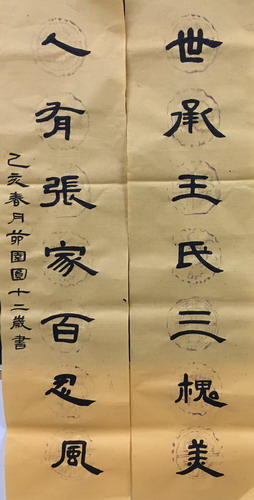 世承王氏三槐美
人有張家百忍風
乙亥春月茆園園十二歲書